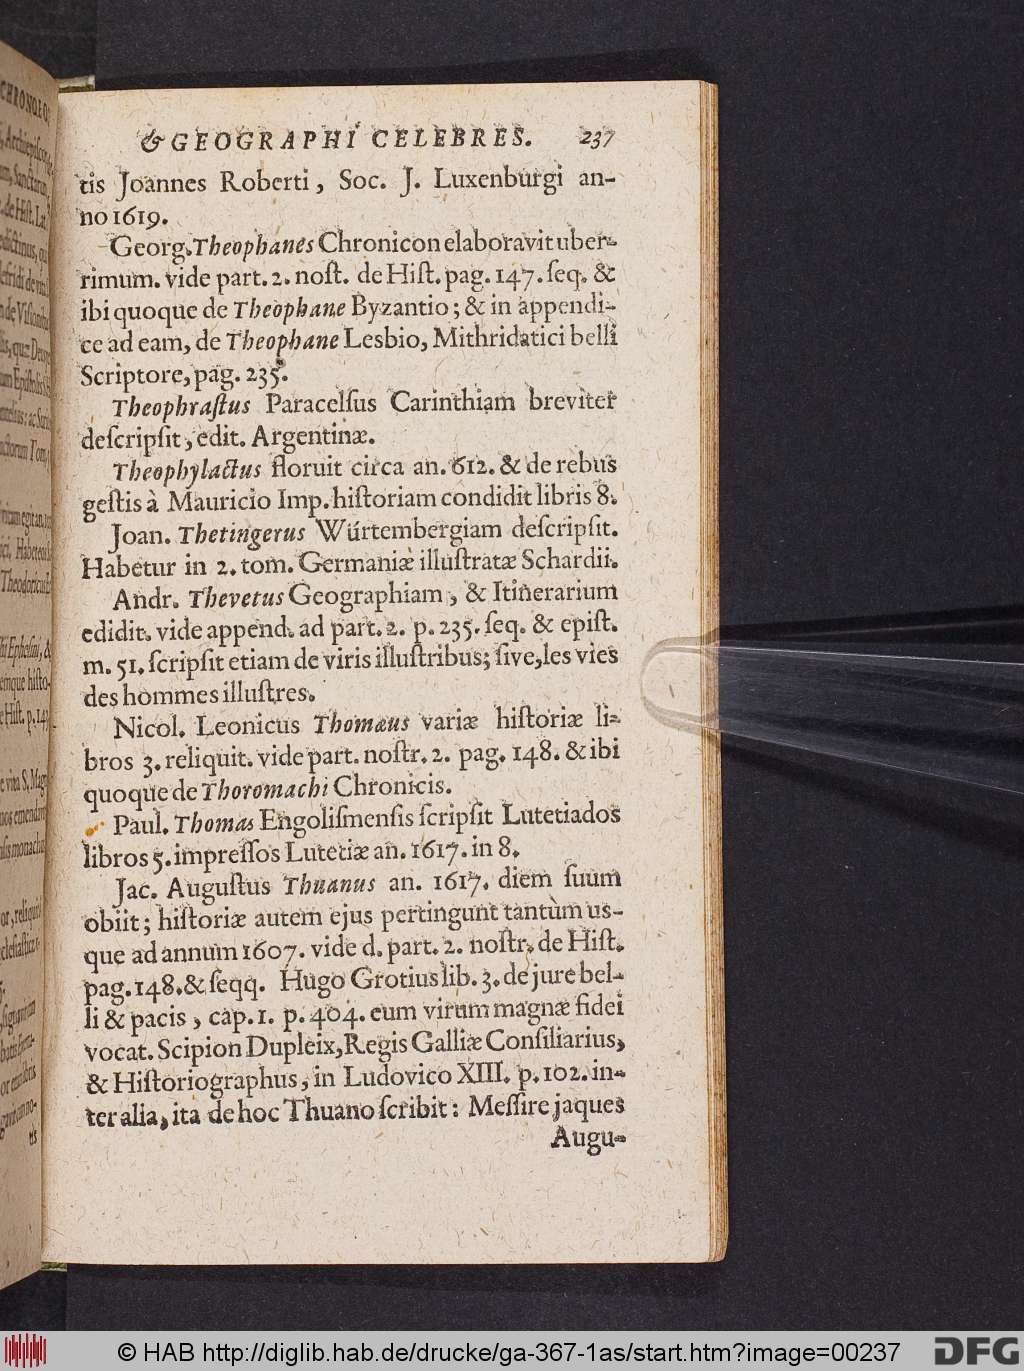 & GEOGRAPHI CELEBRES. 237
tis Joannes Roberti, Soc. J. Luxenburgi an-
no 1619.
Georg. Theophanes Chronicon elaboravit uber-
rimum. vide part. 2. noſt. de Hiſt. pag. 147. ſeq. &
ibi quoque de Theophane Byzantio; & in appendi-
ce ad eam, de Theophane Lesbio, Mithridatici belli
Scriptore, pag. 235.
Theophraſtus Paracelſus Carinthiam breviter
deſcripſit, edit. Argentinæ.
Theophylactus floruit circa an. 612. & de rebus
geſtis à Mauricio Imp. hiſtoriam condidit libris 8.
Joan. Thetingerus Würtembergiam deſcripſit.
Habetur in 2. tom. Germaniæ illuſtratæ Schardii.
Andr. Thevetus Geographiam, & Itinerarium
edidit. vide append. ad part. 2. p. 235. ſeq. & epiſt.
m. 51. ſcripſit etiam de viris illuſtribus; ſive, les vies
des hommes illuſtres.
Nicol. Leonicus Thomæus variæ hiſtoriæ li-
bros 3. reliquit. vide part. noſtr. 2. pag. 148. & ibi
quoque de Thoromachi Chronicis.
Paul. Thomas Engoliſmenſis ſcripſit Lutetiados
libros 5. impreſſos Lutetiæ an. 1617. in 8.
Jac. Auguſtus Thuanus an. 1617. diem ſuum
obiit; hiſtoriæ autem ejus pertingunt tantùm us-
que ad annum 1607. vide d. part. 2. noſtr. de Hiſt.
pag. 148. & ſeqq. Hugo Grotius lib. 3. de jure bel-
li & pacis, cap. 1. p. 404. eum virum magnæ fidei
vocat. Scipion Dupleix, Regis Galliæ Conſiliarius,
& Hiſtoriographus, in Ludovico XIII. p. 102. in-
ter alia, ita de hoc Thuano ſcribit: Meſſire jaques
Augu-
© HAB http://diglib.hab.de/drucke/ga-367-1as/start.htm?image=00237
DFG